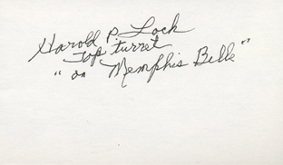 Harold P. Loch
top turret
"on Memphis Belle"